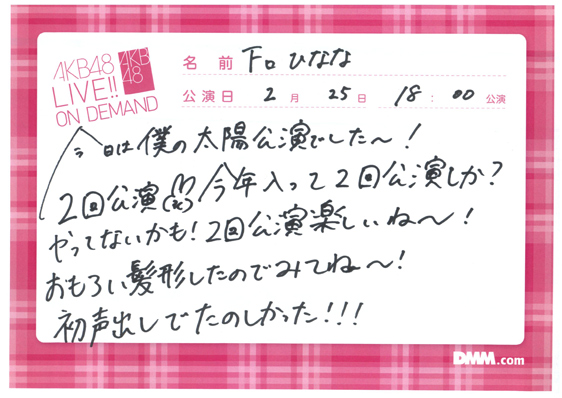 AKB48
LIVE!!
ON DEMAND
AKB
48
名前 下口ひなな
公演日 2月 25日 18:00 公演
今日は僕の太陽公演でした〜!
2回公演 今年入って2回公演しか?
やってないかも!2回公演楽しいね〜!
おもろい髪形したのでみてね〜!
初声出しでたのしかった!!!
DMM.com